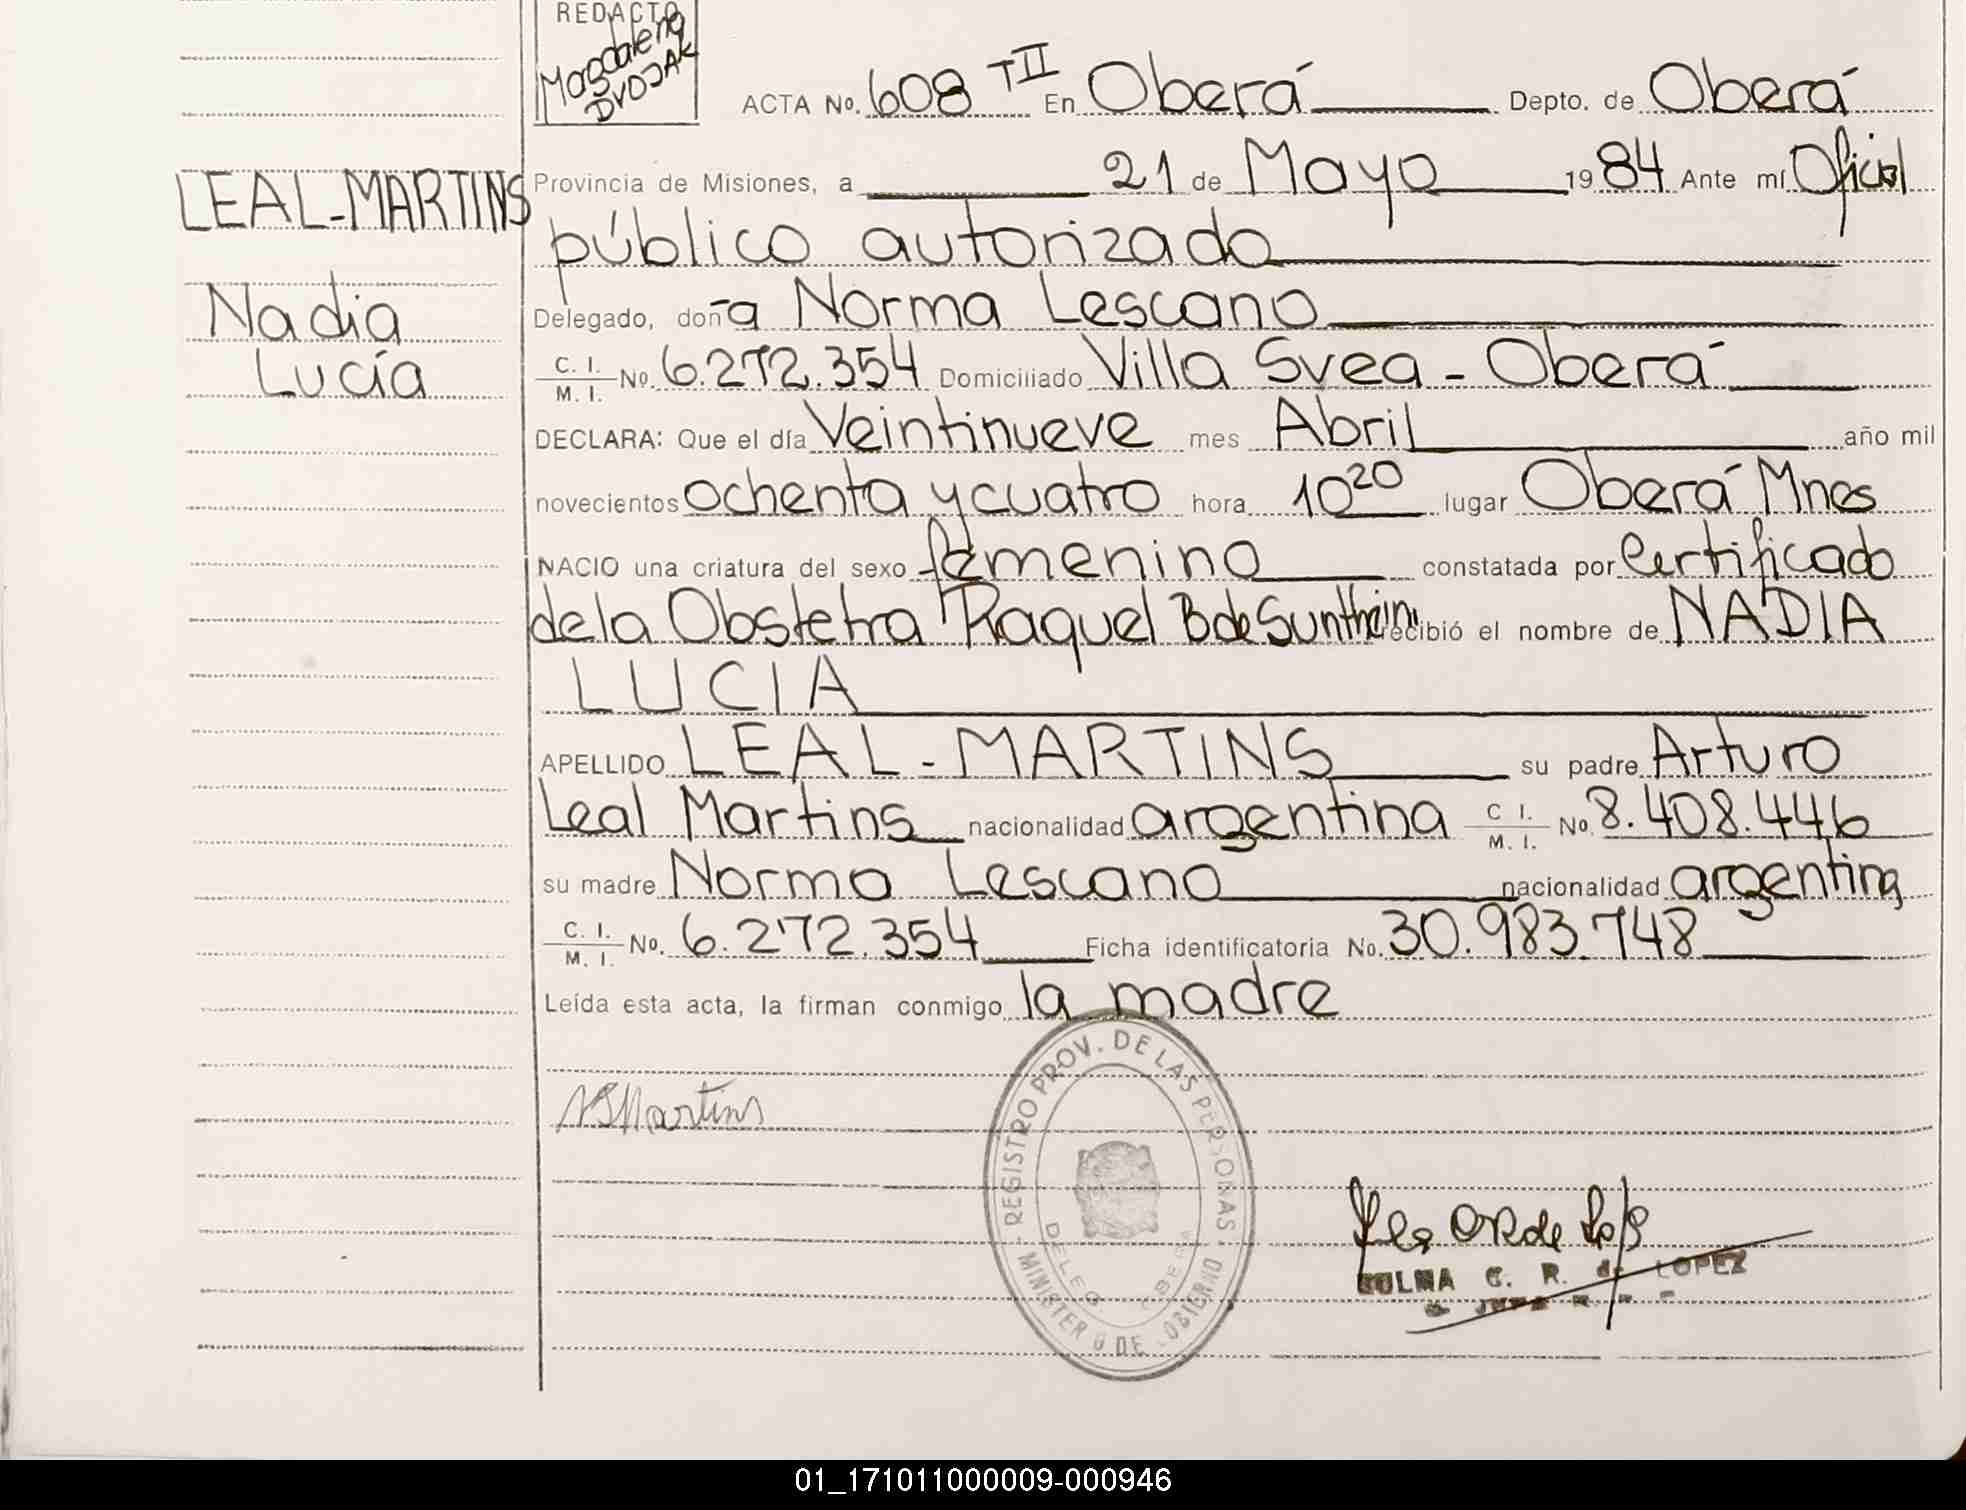 REDACTO
Magdalena
DVOJAK
ACTA No. 608 TII En Oberá Depto. de Oberá
LEAL-MARTINS
Provincia de Misiones, a 21 de Mayo 1984 Ante mí Oficial
público autorizado
Nadia
Delegado, doña Norma Lescano
Lucía
C. I.
M. I. No. 6.272.354 Domiciliado Villa Svea - Oberá
DECLARA: Que el día Veintinueve mes Abril año mil
novecientos ochenta y cuatro hora 10 20 lugar Oberá Mnes
NACIO una criatura del sexo femenino constatada por Certificado
de la Obstetra Raquel B de recibió el nombre de NADIA
LUCIA
APELLIDO LEAL-MARTINS su padre Arturo
Leal Martins nacionalidad argentina C I. M. I. No. 8.408.446
su madre Norma Lescano nacionalidad argentina
C. I.
M. I. No. 6.272.354 Ficha identificatoria No. 30.983.748
Leída esta acta, la firman conmigo la madre
REGISTRO PROV. DE LAS PERSONAS
Martins
DELEG OBERA
MINISTERIO DE GOBIERNO
C. R. de LOPEZ
01_171011000009-000946